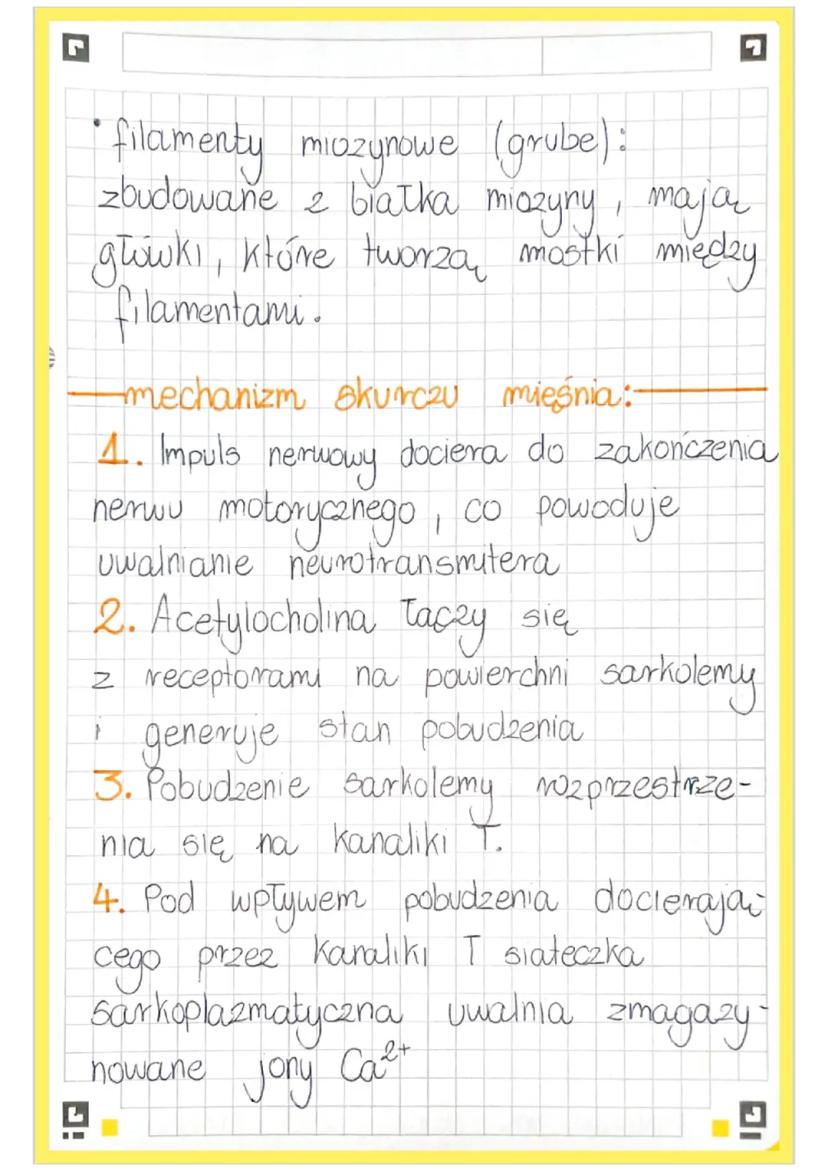 • filamenty miozynowe (grube):
zbudowane z białka miozyny, mają
główki, które tworzą mostki między
filamentami.
mechanizm skurczu mięśnia:
1. Impuls nerwowy dociera do zakończenia
nerwu motorycznego, co powoduje
uwalnianie neurotransmitera
2. Acetylocholina łączy się
z receptorami na powierzchni sarkolemy
i generuje stan pobudzenia
3. Pobudzenie sarkolemy rozprzestrze-
nia się na kanaliki T.
4. Pod wpływem pobudzenia docierają-
cego przez kanaliki T siateczka
sarkoplazmatyczna uwalnia zmagazy-
nowane jony Ca²⁺